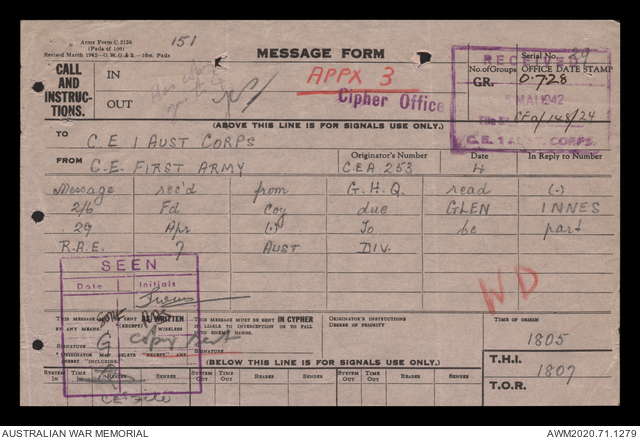 Army Form C.2136
(Pads of 100)
Revised March 1942
151
MESSAGE FORM
Serial No. 29
CALL
AND
INSTRUC-
TIONS.
IN
OUT
APPX 3
Cipher Office
RECEIVED
No. of Groups
GR.
OFFICE DATE STAMP
0728
MAI 1942
C.E. 1 AUST. CORPS.
(ABOVE THIS LINE IS FOR SIGNALS USE ONLY.)
TO C.E. 1 AUST CORPS
FROM C.E. FIRST ARMY
Originator's Number
CEA 253
Date
4
In Reply to Number
Message rec'd from G.H.Q. read (.)
2/6 Fd Coy due GLEN INNES
29 Apr (.) To be part
R.A.E. 7 AUST DIV.
SEEN
Date Initials
WD
THIS MESSAGE MAY BE SENT AS WRITTEN
BY ANY MEANS (EXCEPT) WIRELESS
SIGNATURE
THIS MESSAGE MUST BE SENT IN CYPHER
IF LIABLE TO INTERCEPTION OR TO FALL
INTO ENEMY HANDS.
SIGNATURE
ORIGINATOR'S INSTRUCTIONS
DEGREE OF PRIORITY
TIME OF ORIGIN
1805
G
Copy sent
T.H.I.
1807
T.O.R.
(BELOW THIS LINE IS FOR SIGNALS USE ONLY.)
SYSTEM IN TIME IN READER SENDER SYSTEM OUT TIME OUT READER SENDER SYSTEM OUT TIME OUT READER SENDER
AUSTRALIAN WAR MEMORIAL
AWM2020.71.1279